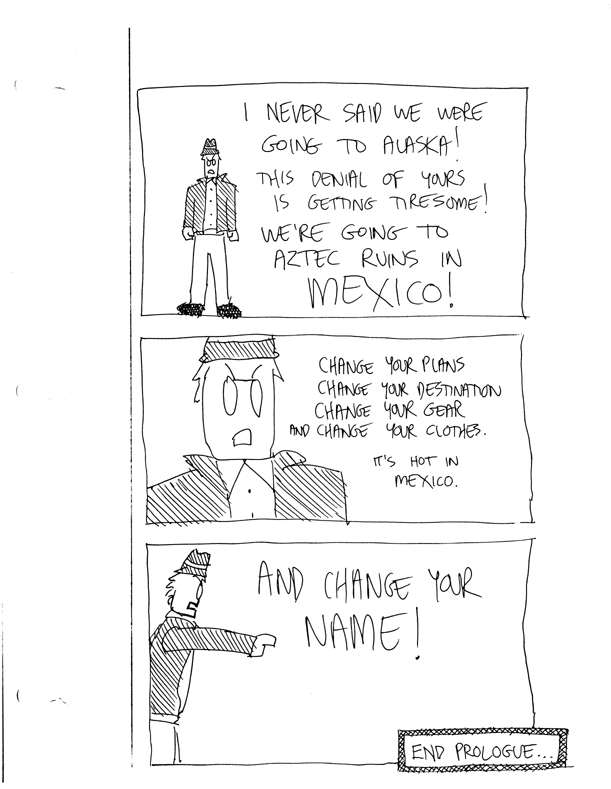 I NEVER SAID WE WERE
GOING TO ALASKA!
THIS DENIAL OF YOURS
IS GETTING TIRESOME!
WE'RE GOING TO
AZTEC RUINS IN
MEXICO!
CHANGE YOUR PLANS
CHANGE YOUR DESTINATION
CHANGE YOUR GEAR
AND CHANGE YOUR CLOTHES.
IT'S HOT IN
MEXICO.
AND CHANGE YOUR
NAME!
END PROLOGUE...